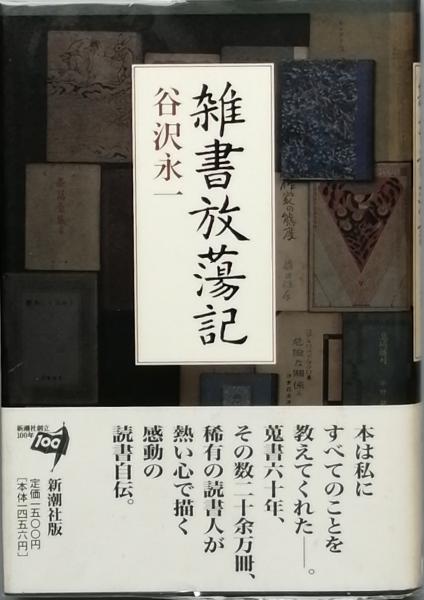 雑書放蕩記
谷沢永一
作家の態度
危険な関係
本は私に
すべてのことを
教えてくれた――。
蒐書六十年、
その数二十余万冊、
稀有の読書人が
熱い心で描く
感動の
読書自伝。
新潮社創立
100年
100
新潮社版
定価一五〇〇円
[本体一四五六円]